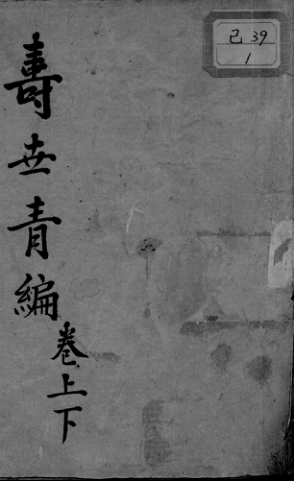 己 39
1
壽世青編
卷上下